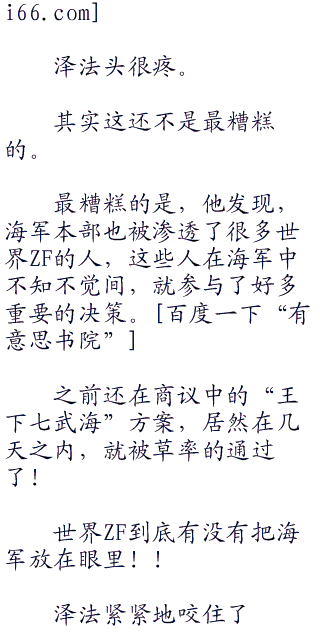 i66.com]
泽法头很疼。
其实这还不是最糟糕
的。
最糟糕的是，他发现，
海军本部也被渗透了很多世
界ZF的人，这些人在海军中
不知不觉间，就参与了好多
重要的决策。[百度一下“有
意思书院”]
之前还在商议中的“王
下七武海”方案，居然在几
天之内，就被草率的通过
了！
世界ZF到底有没有把海
军放在眼里！！
泽法紧紧地咬住了